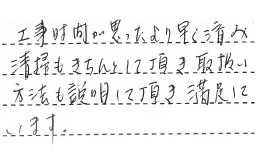 工事時間が思ったより早く済み
清掃もきちんとして頂き取扱い
方法も説明して頂き満足して
います。